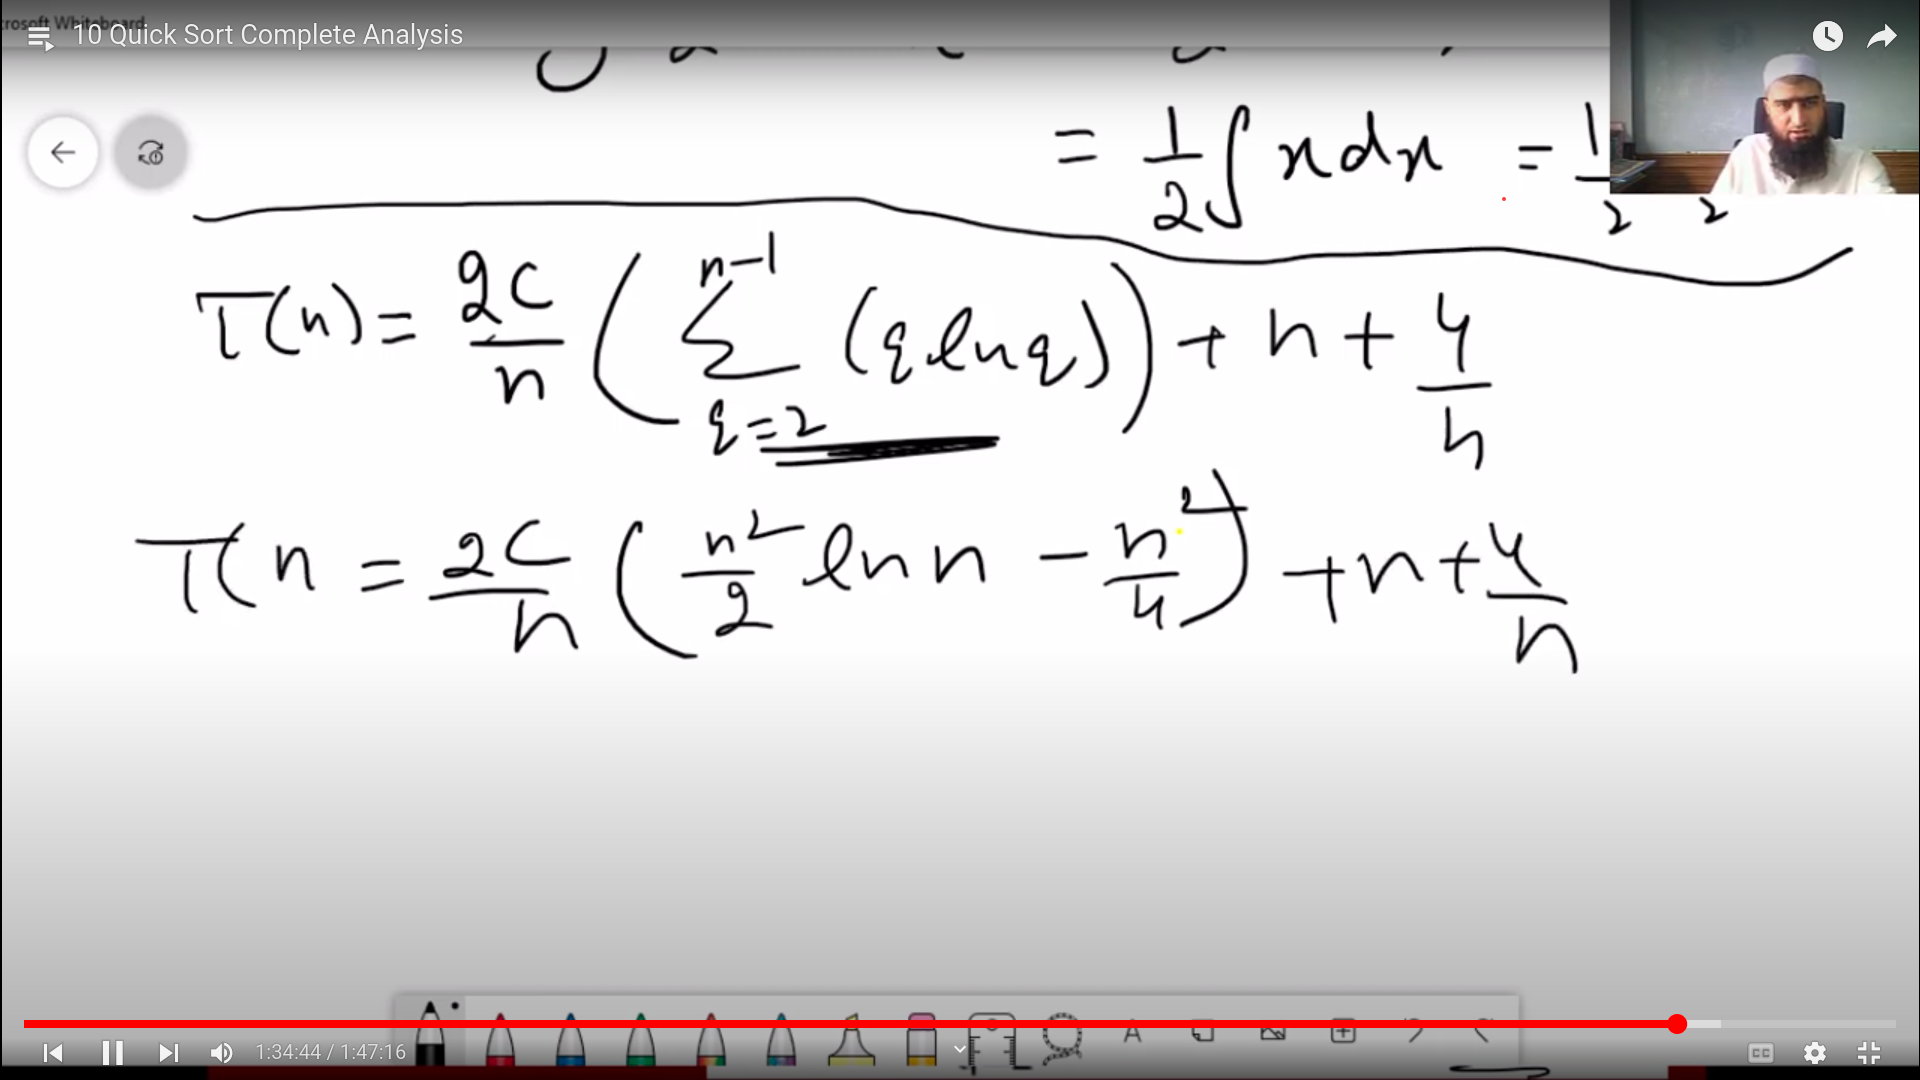 crosoft Whiteboard
10 Quick Sort Complete Analysis
= 1/2 ∫ x dx = 1
2 2
T(n) = 2c/n ( n-1 Σ q=2 (q ln q) ) + n + 4/n
T( n = 2c/n ( n²/2 ln n - n²/4 ) + n + 4/n
1:34:44 / 1:47:16
CC